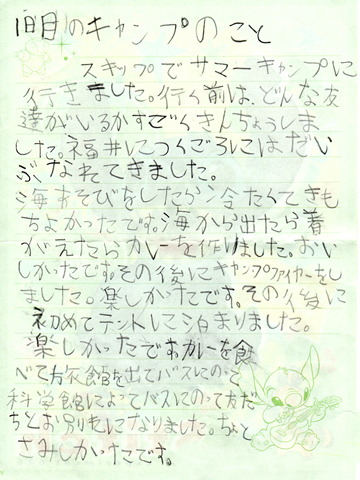 1日目のキャンプのこと
スキップでサマーキャンプに
行きました。行く前は、どんな友
達がいるかすごくきんちょうしま
した。福井につくごろにはだい
ぶなれてきました。
海あそびをしたら冷たくてきも
ちよかったです。海から出たら着
がえたらカレーを作りました。おい
しかったです。その後にキャンプファイヤーをし
ました。楽しかったです。その後に
初めてテントに泊まりました。
楽しかったですカレーを食
べて旅館を出てバスにのって
科学館によってバスにのって友だ
ちとお別れになりました。ちょっと
さみしかったです。